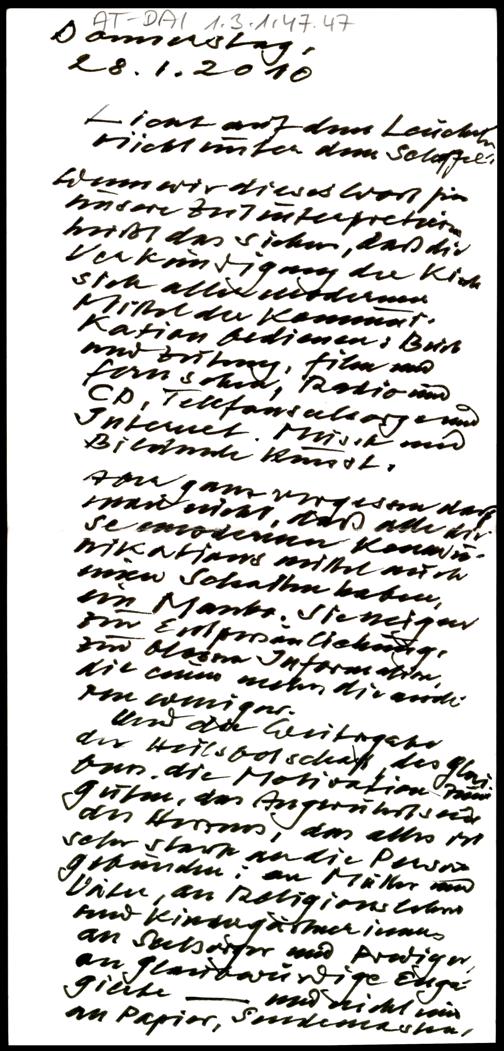 AT-DAI 1.3.1.47.47
Donnerstag,
28.1.2010
Licht auf dem Leuchter
nicht unter dem Scheffel:
Wenn wir dieses Wort für
unsere Zeit interpretieren
heißt das sicher, daß die
Verkündigung der Kirche
sich aller modernen
Mittel der Kommuni-
kation bedienen: Buch
und Zeitung, Film und
Fernsehen, Radio und
CD, Telefonseelsorge und
Internet. Musik und
Bildende Kunst.
Aber ganz vergessen darf
man nicht, daß alle die-
se modernen Kommu-
nikationsmittel auch
einen Schatten haben,
ein Manko. Sie neigen
zur Entpersönlichung,
zur bloßen Information,
die einen mehr die ande-
ren weniger.
Und die Weitergabe
der Heilsbotschaft, des Glau-
bens, die Motivation zum
Guten, das Angerührtsein
des Herzens, das alles ist
sehr stark an die Person
gebunden: an Mütter und
Väter, an Religionslehrer
und Kindergärtnerinnen
an Seelsorger und Prediger,
an glaubwürdige Enga-
gierte — und nicht nur
an Papier, Sendemasten,